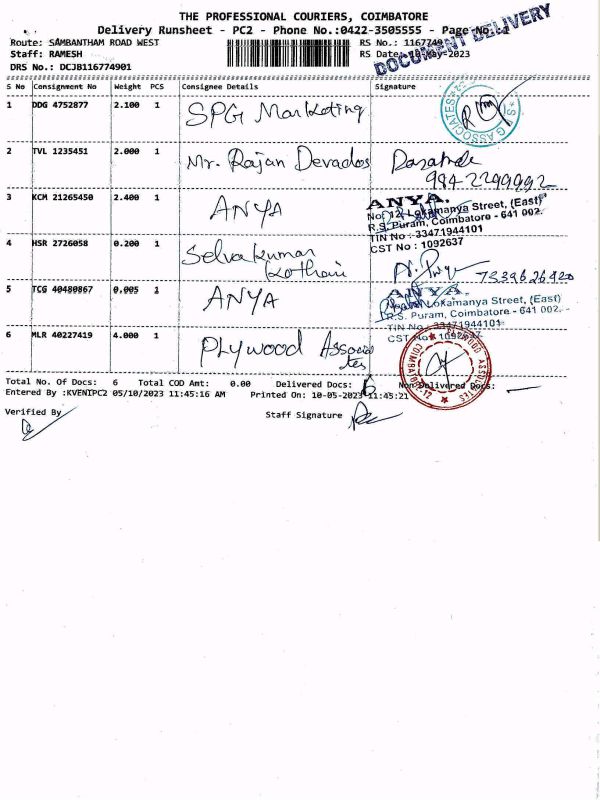 THE PROFESSIONAL COURIERS, COIMBATORE
Delivery Runsheet - PC2 - Phone No.:0422-3505555 - Page No.:1
DOCUMENT DELIVERY
Route: SAMBANTHAM ROAD WEST RS No.: 1167749
Staff: RAMESH RS Date: 10-May-2023
DRS No.: DCJB116774901
S No Consignment No Weight PCS Consignee Details Signature
1 DDG 4752877 2.100 1 SPG Marketing
S P G ASSOCIATES
2 TVL 1235451 2.000 1 Mr. Rajan Devados
9842299992
3 KCM 21265450 2.400 1 ANYA
ANYA.
No. 12, Lokamanya Street, (East)
R.S. Puram, Coimbatore - 641 002.
TIN No : 33471944101
CST No : 1092637
4 HSR 2726058 0.200 1 Selvakumar
Kothari
7339626920
5 TCG 40480867 0.005 1 ANYA
ANYA.
Lokamanya Street, (East)
R.S. Puram, Coimbatore - 641 002.
TIN No : 33471944101
CST No : 1092637
6 MLR 40227419 4.000 1 PLywood Associates
PLYWOOD ASSOCIATES
COIMBATORE-12
Total No. Of Docs: 6 Total COD Amt: 0.00 Delivered Docs: 6 Non Delivered Docs: —
Entered By :KVENIPC2 05/10/2023 11:45:16 AM Printed On: 10-05-2023 11:45:21
Verified By Staff Signature